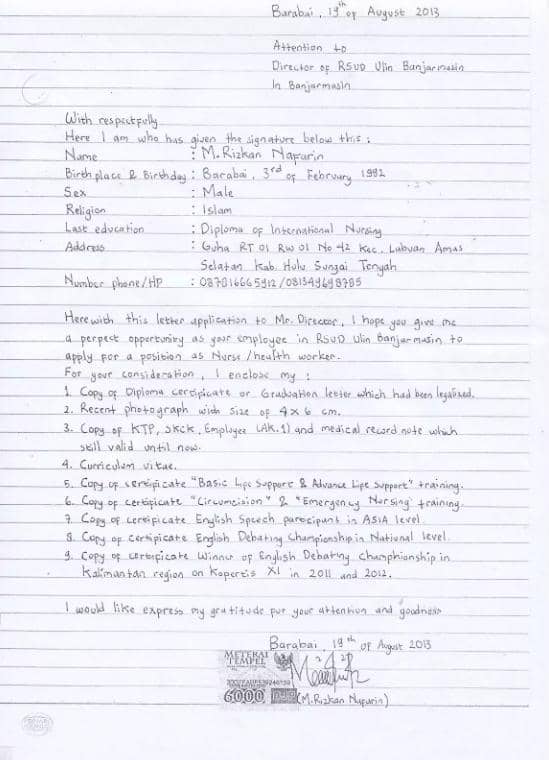 Barabai, 19th of August 2013
Attention to
Director of RSUD Ulin Banjarmasin
In Banjarmasin
With respectfully
Here I am who has given the signature below this :
Name : M. Rizkan Napurin
Birthplace & Birthday : Barabai, 3rd of February 1992
Sex : Male
Religion : Islam
Last education : Diploma of International Nursing
Address : Guha RT 01 RW 01 No 42 Kec. Labuan Amas
Selatan Kab. Hulu Sungai Tengah
Number phone/HP : 087816665912 / 081349698785
Herewith this letter application to Mr. Director, I hope you give me
a perpect opportunity as your employee in RSUD Ulin Banjarmasin to
apply for a position as Nurse / health worker.
For your consideration, I enclose my :
1. Copy of Diploma certipicate or Graduation letter which had been legalized.
2. Recent photograph with size of 4x6 cm.
3. Copy of KTP, SKCK, Employee (AK.1) and medical record note which
still valid until now.
4. Curriculum vitae.
5. Copy of certipicate "Basic Lipe Support & Advance Lipe Support" training.
6. Copy of certipicate "Circumcision" & "Emergency Nursing" training.
7. Copy of certipicate English Speech parcipant in ASIA level.
8. Copy of certipicate English Debating Championship in National level.
9. Copy of certipicate Winner of English Debating champhionship in
Kalimantan region on Kopertis XI in 2011 and 2012.
I would like express my gratitude por your attention and goodness
Barabai, 19th of August 2013
METERAI
TEMPEL
6000
(M. Rizkan Napurin)